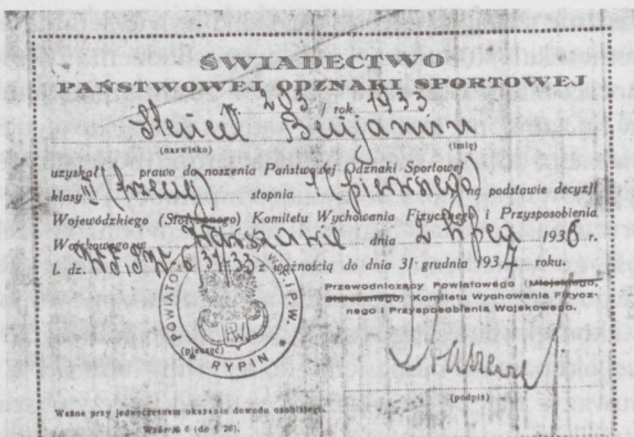 ŚWIADECTWO
PAŃSTWOWEJ ODZNAKI SPORTOWEJ
203 / rok 1933
Benjamin
(nazwisko) (imię)
uzyskał prawo do noszenia Państwowej Odznaki Sportowej
klasy III (trzeciej) stopnia 1 (pierwszego) na podstawie decyzji
Wojewódzkiego (Stołecznego) Komitetu Wychowania Fizycznego i Przysposobienia
Wojskowego w Warszawie dnia 2 lipca 1936 r.
l. dz. 31/33 z ważnością do dnia 31 grudnia 1937 roku.
Przewodniczący Powiatowego (Miejskiego,
Stołecznego) Komitetu Wychowania Fizycz-
nego i Przysposobienia Wojskowego.
POWIATOW W.F. I P.W.
PW
RYPIN
(pieczęć)
(podpis)
Ważne przy jednoczesnem okazaniu dowodu osobistego.
Wzór № 6 (do § 20).